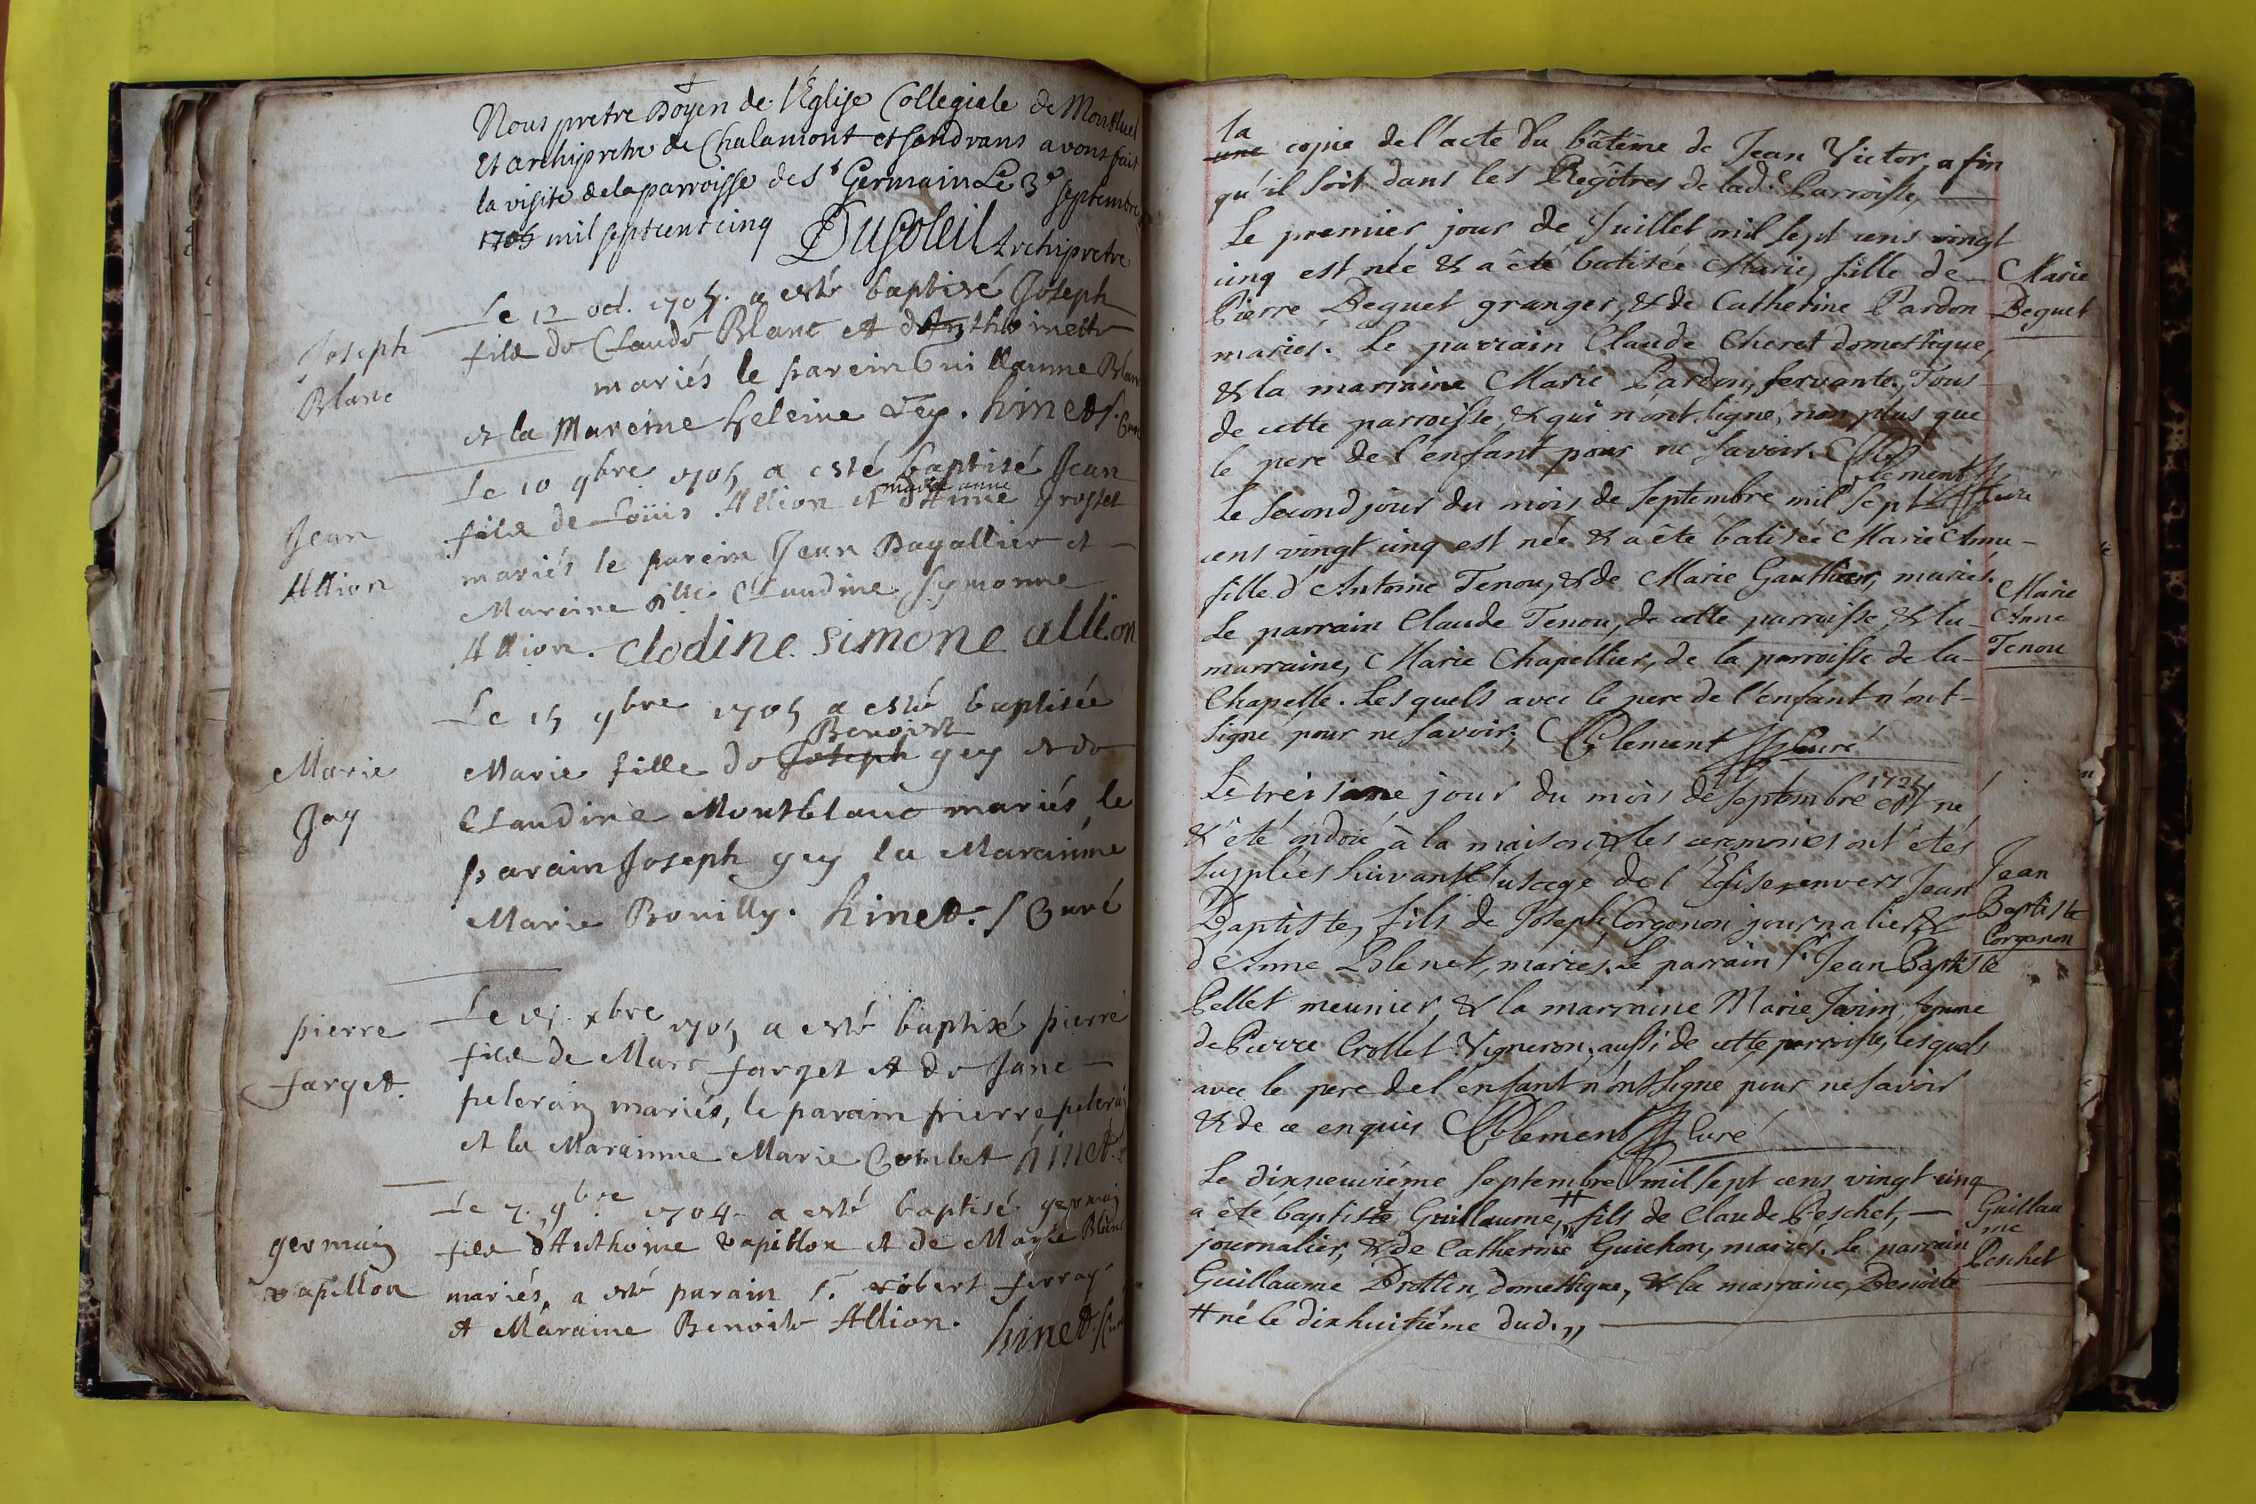 Nous pretre Doyen de l'Eglise Collegiale de Montluel
et archipretre de Chalamont et Sandrans avons fait
la visite de la parroisse de St Germain Le 3e septembre
1705 mil sept cent cinq Dusoleil Archipretre
Joseph
Blanc
Le 12 oct. 1705. a esté baptisé Joseph
fils de Claude Blanc et d'Anthoinette
mariés le parein Guillaume Blanc
et la Mareine heleine Fey. hinet
Jean
Allion
Le 10 9bre 1705 a esté baptisé Jean
marie anne
fils de Loüis Allion et d'Anne grosset
mariés le parein Jean Dagallier et
Mareine Claudine Symonne
Allion. clodine simone allion
Marie
Jay
Le 15 9bre 1705 a esté baptisée
Benoist
Marie fille de Joseph gey et de
Claudine Montblanc mariés, le
parain Joseph gey la Maraine
Marie Bouilly. hinet. Curé
pierre
farget.
Le xbre 1705 a esté baptisé pierre
fils de Marc farget et de Jane
pelerain mariés, le parain pierre pelerai
et la Maraine Marie Combet hinet
germain
vapillon
Le 7. 9bre 1704 a esté baptisé germain
fils d'Anthoine vapillon et de Marie Blanc
mariés, a esté parain Sr. robert ferray
et Maraine Benoite Allion. hinet
la
une copie de l'acte du bâtême de Jean Victor, a fin
qu'il soit dans les Regîtres de lade Parroisse,
Le premier jour de Juillet mil sept cens vingt
cinq est née & a été batisée Marie, fille de
Pierre Beguet granger, & de Catherine Pardon
mariés. Le parrain Claude Cheret domestique,
& la marraine Marie Pardon, servante. Tous
de cette parroisse, & qui n'ont signé, non plus que
le pere de l'enfant pour ne savoir. Clement Curé
Marie
Beguet
Le second jour du mois de Septembre mil sept
cens vingt cinq est née & a été batisée Marie Anne
fille d'Antoine Tenou, & de Marie Gauthier, mariés.
Le parrain Claude Tenou, de cette parroisse, & la
marraine, Marie Chapellier, de la parroisse de la
Chapelle. Lesquels avec le pere de l'enfant n'ont
signé pour ne savoir, Clement Curé
Marie
Anne
Tenou
Le treisiéme jour du mois de septembre 1725 est né
& été ondoié à la maison, & les ceremonies ont étés
supplées suivant l'usage de l'Eglise envers Jean
Baptiste, fils de Joseph Corgenon journalier, &
d'Anne Blenet, mariés. Le parrain Sr Jean Baptiste
Pellet meunier, & la marraine Marie Janin, femme
de Pierre Crollet Vigneron, aussi de cette parroisse, lesquels
avec le pere de l'enfant n'ont signé pour ne savoir
& de ce enquis Clement Curé
Jean
Baptiste
Corgenon
Le dixneuviéme Septembre mil sept cens vingt cinq
a été baptisé Guillaume, # fils de Claude Peschet,
journalier, & de Catherine Guichon, mariés. Le parrain
Guillaume Brottin, domestique, & la marraine, Benoite
# né le dixhuitiéme dud. „
Guillau
me
Peschet